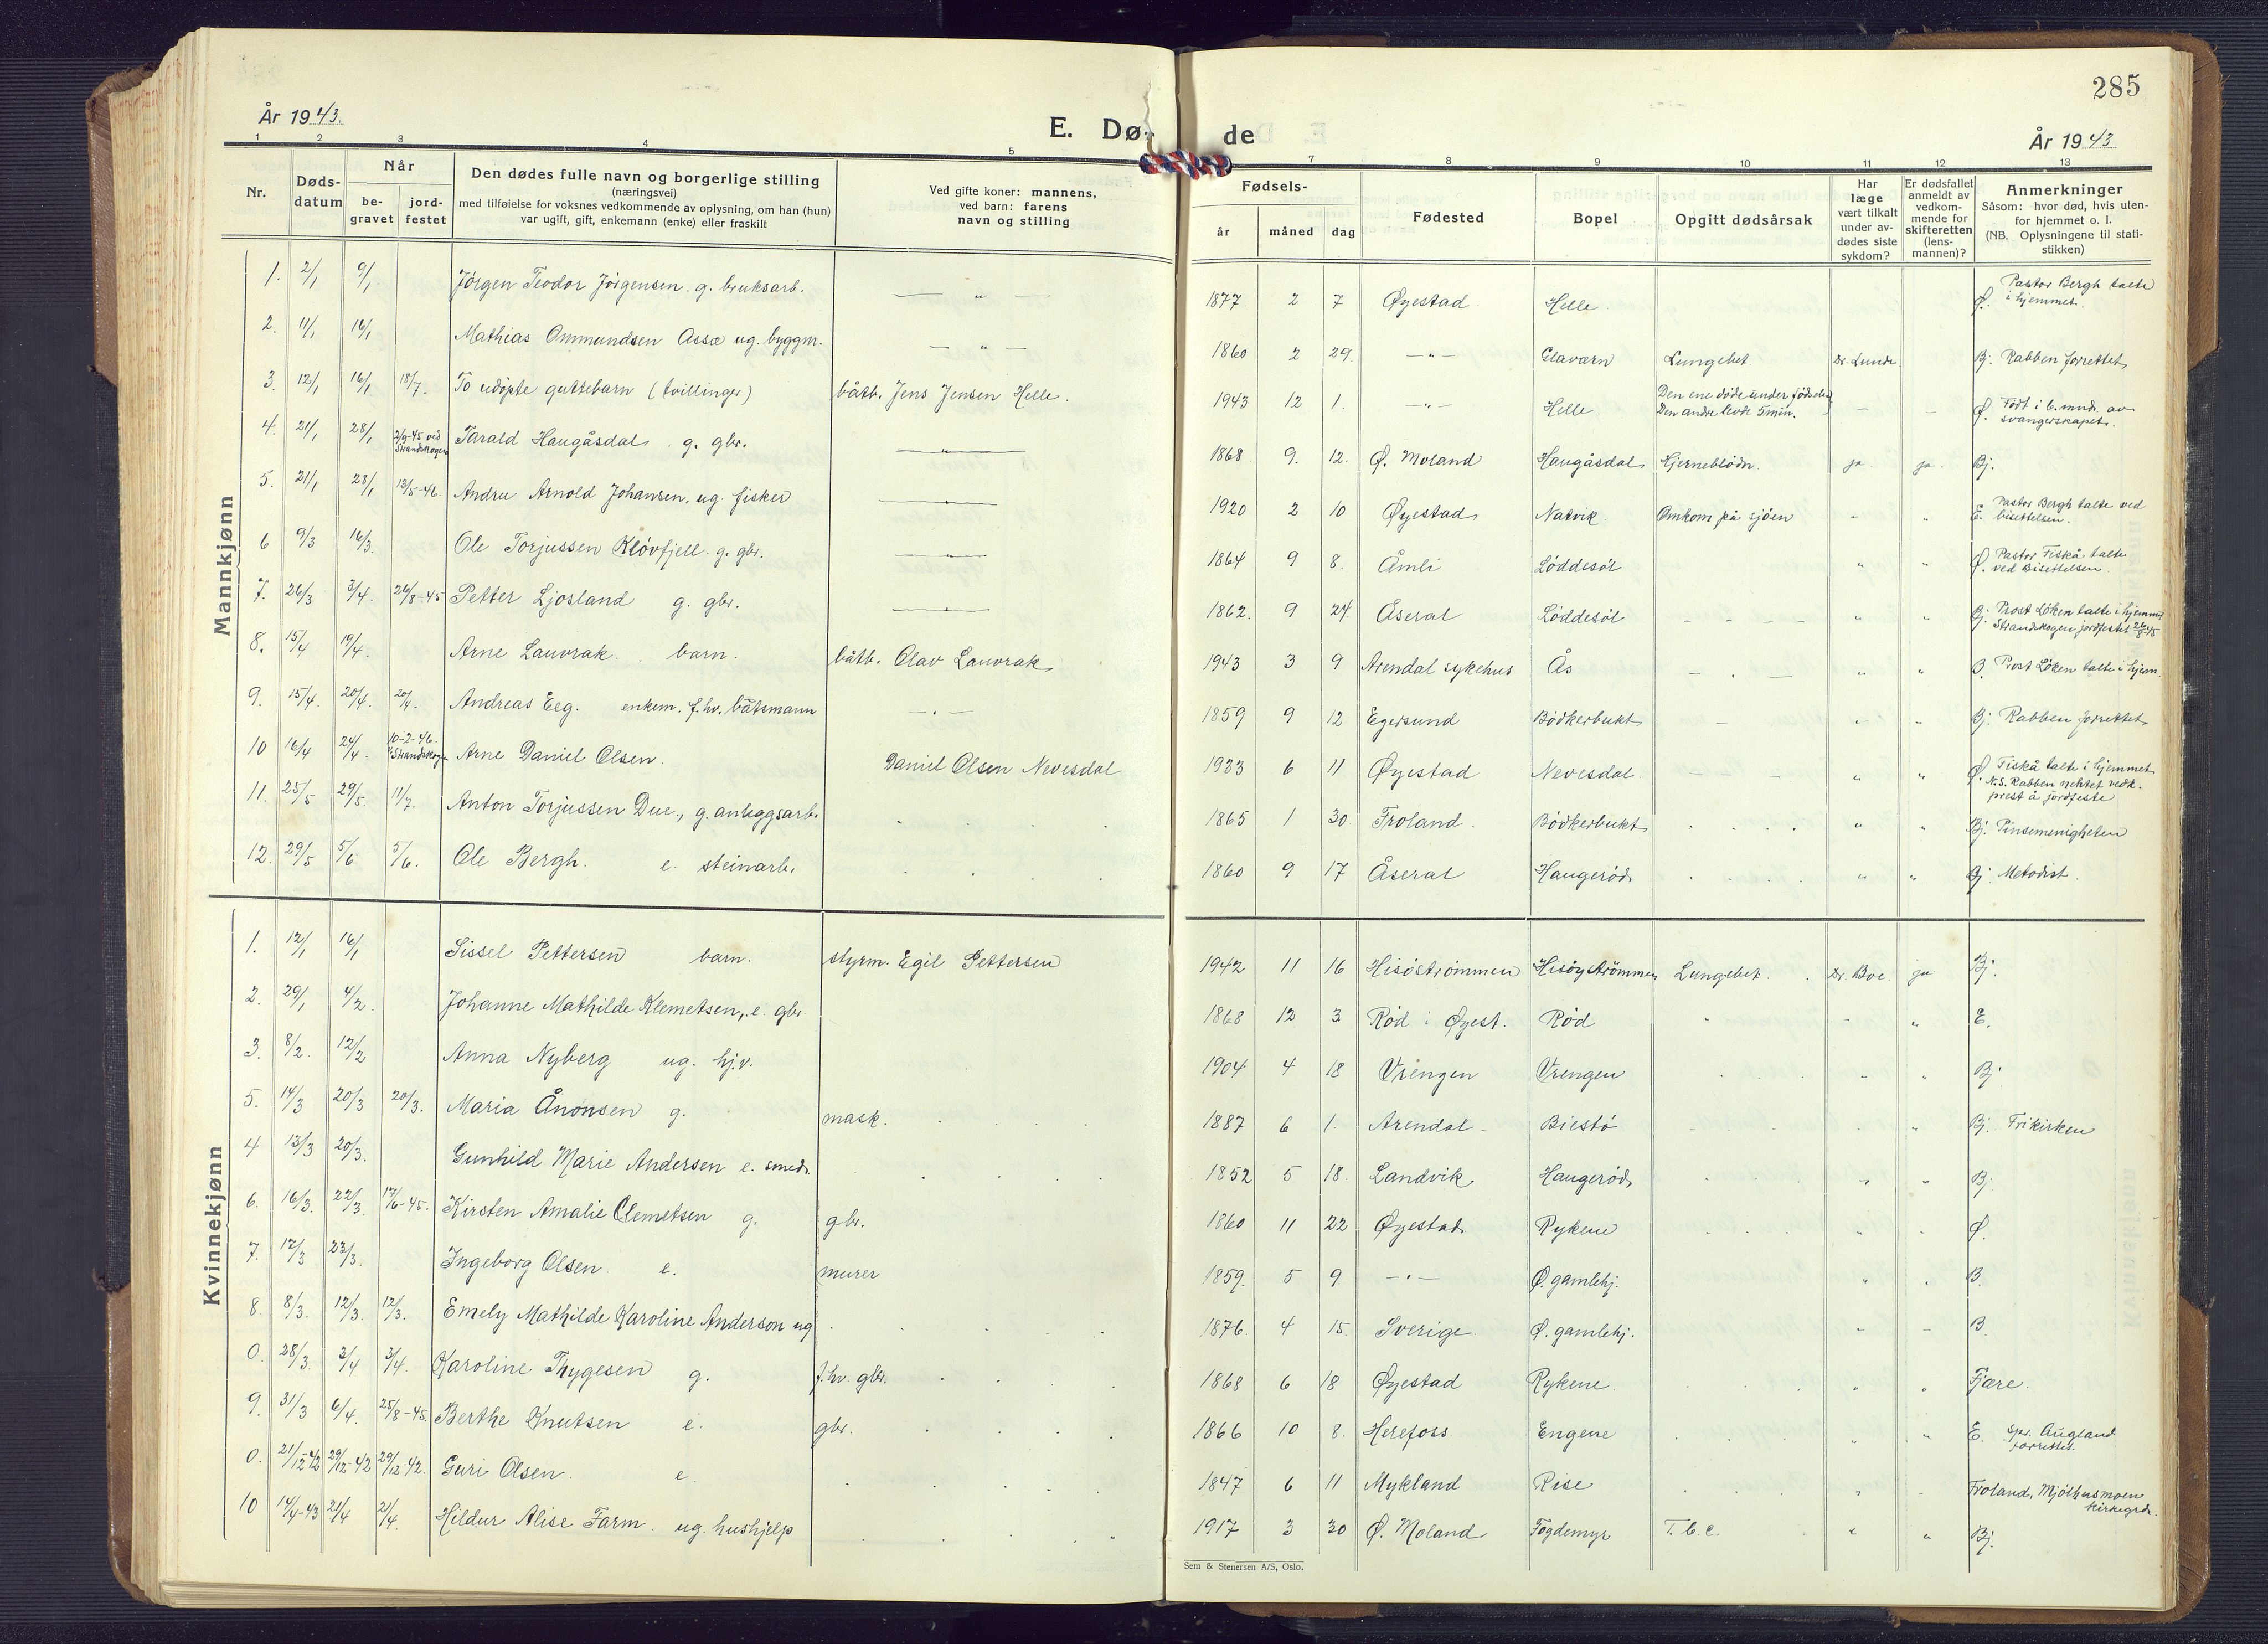 285
År 1943.
E. Dø- de
År 1943
1 2 3 4 5 7 8 9 10 11 12 13
Nr.
Døds-
datum
Når
be-
gravet
jord-
festet
Den dødes fulle navn og borgerlige stilling
(næringsvei)
med tilføielse for voksnes vedkommende av oplysning, om han (hun)
var ugift, gift, enkemann (enke) eller fraskilt
Ved gifte koner: mannens,
ved barn: farens
navn og stilling
Fødsels-
år måned dag
Fødested
Bopel
Opgitt dødsårsak
Har
læge
vært tilkalt
under av-
dødes siste
sykdom?
Er dødsfallet
anmeldt av
vedkom-
mende for
skifteretten
(lens-
mannen)?
Anmerkninger
Såsom: hvor død, hvis uten-
for hjemmet o. l.
(NB. Oplysningene til stati-
stikken)
Mannkjønn
1. 2/1 9/1 Jörgen Teodor Jörgensen g. bruksarb. — " — 1877 2 7 Øyestad Helle Ø. Pastor Bergh talte
i hjemmet.
2. 11/1 16/1 Mathias Ommundsen Assæ ug. byggm. — " — 1860 2 29. — " — Glavarn Lungebet. Dr. Lunde Bj. Rabben forrettet
3. 12/1 16/1 18/7. To udöpte guttebarn (tvillinger) båtb. Jens Jensen Helle. 1943 12 1. — " — Helle. Den ene döde under födselen
Den andre levde 5 min. — — Ø. Födt i 6. mnd. av
svangerskapet.
4. 21/1 28/1 2/9-45 ved
Strandskogen Tarald Haugåsdal g. gbr. — " — 1868 9. 12. Ø. Moland Haugåsdal Hjerneblödn. ja ja Bj.
5. 21/1 28/1 13/5-46. Andru Arnold Johansen. ug. fisker — " — 1920 2 10 Øyestad Natvik Omkom på sjöen - " E. Pastor Bergh talte ved
bisettelsen.
6 9/3 16/3. Ole Torjussen Klövfjell g. gbr. — " — 1864 9 8. Åmli Löddesöl " " Ø. Pastor Fiskå talte
ved Bisettelsen.
7. 26/3 3/4. 26/8-45 Petter Ljosland g. gbr. — " — 1862. 9 24. Åseral Löddesöl - - - - " " Bj. Prost Löken talte i hjemmet
Strandskogen jordfestet 26/8-45
8. 15/4 19/4. Arne Lauvrak barn. båtb. Olav Lauvrak 1943 3 9 Arendal sykehus Ås — . — " " B. Prost Löken talte i hjem.
9. 15/4. 20/4. 20/4. Andreas Eeg. enkem. f.hv. båtsmann — . — 1859 9 12 Egersund Bödkerbukt — " " Bj. Rabben forrettet
10 16/4 24/4. 10-2-46.
Strandskogen Arne Daniel Olsen. Daniel Olsen Nevesdal 1933 6 11 Øyestad Nevesdal - - - " " Ø. Fiskå talte i hjemmet
N.S. Rabben nektet vedk.
prest å jordfeste
11. 25/5 29/5. 11/7. Anton Torjussen Due, g. anleggsarb. 1865 1 30 Froland. Bödkerbukt " " Bj. Pinsemenigheten
12. 29/5 5/6 5/6. Ole Bergh. e. steinarb. 1860 9 17 Åseral Haugeröd " " Bj. Metodist.
Kvinnekjønn
1. 12/1 16/1 Sissel Pettersen barn. styrm. Egil Pettersen 1942 11 16 Hisöströmmen Hisöyströmmen Lungebet. Dr. Boe ja Bj.
2. 29/1 4/2. Johanne Mathilde Klemetsen, e. gbr 1868 12 3 Röd i Øyest. Röd " - " E.
3. 8/2. 12/2 Anna Nyberg ug. hj.v. 1904 4 18 Vrengen Vrengen " " Bj.
5. 14/3 20/3 20/3. Maria Ånonsen g. mask. 1887 6 1. Arendal Biestö " " Bj. Frikirken
4 13/3 20/3. Gunhild Marie Andersen e. smed. 1852 5 18. Landvik Haugeröd " " Bj.
6. 16/3. 22/3 17/6-45. Kirsten Amalie Clemetsen g. gbr. 1860 11 22 Øyestad Rykene " " Ø.
7. 17/3 23/3. Ingeborg Olsen. e. murer 1859. 5 9 — . — Ø. gamlehj. " " B.
8. 8/3. 12/3. 12/3. Emely Mathilde Karoline Anderson ug 1876. 4 15. Sverige. Ø. gamlehj. " - B.
0. 28/3. 3/4 3/4. Karoline Thygesen g. f.hv. gbr. 1868 6 18 Øyestad Rykene. " " Fjære.
9. 31/3 6/4. 25/8-45. Berthe Knutsen e. gbr. 1866 10 8. Herefoss Engene " " E. spr. Augland
forrettet.
0. 21/12-42 29/12-42 29/12-42. Guri Olsen. e. 1847 6 11 Mykland Rise " " Froland, Mjölhusmoen
kirkegrd.
10 14/4-43 21/4 21/4. Hildur Alise Farm. ug. hushjelp 1917 3 30 Ø. Moland Fogdemyr T.b.c. " " Bj.
Sem & Stenersen A/S, Oslo.